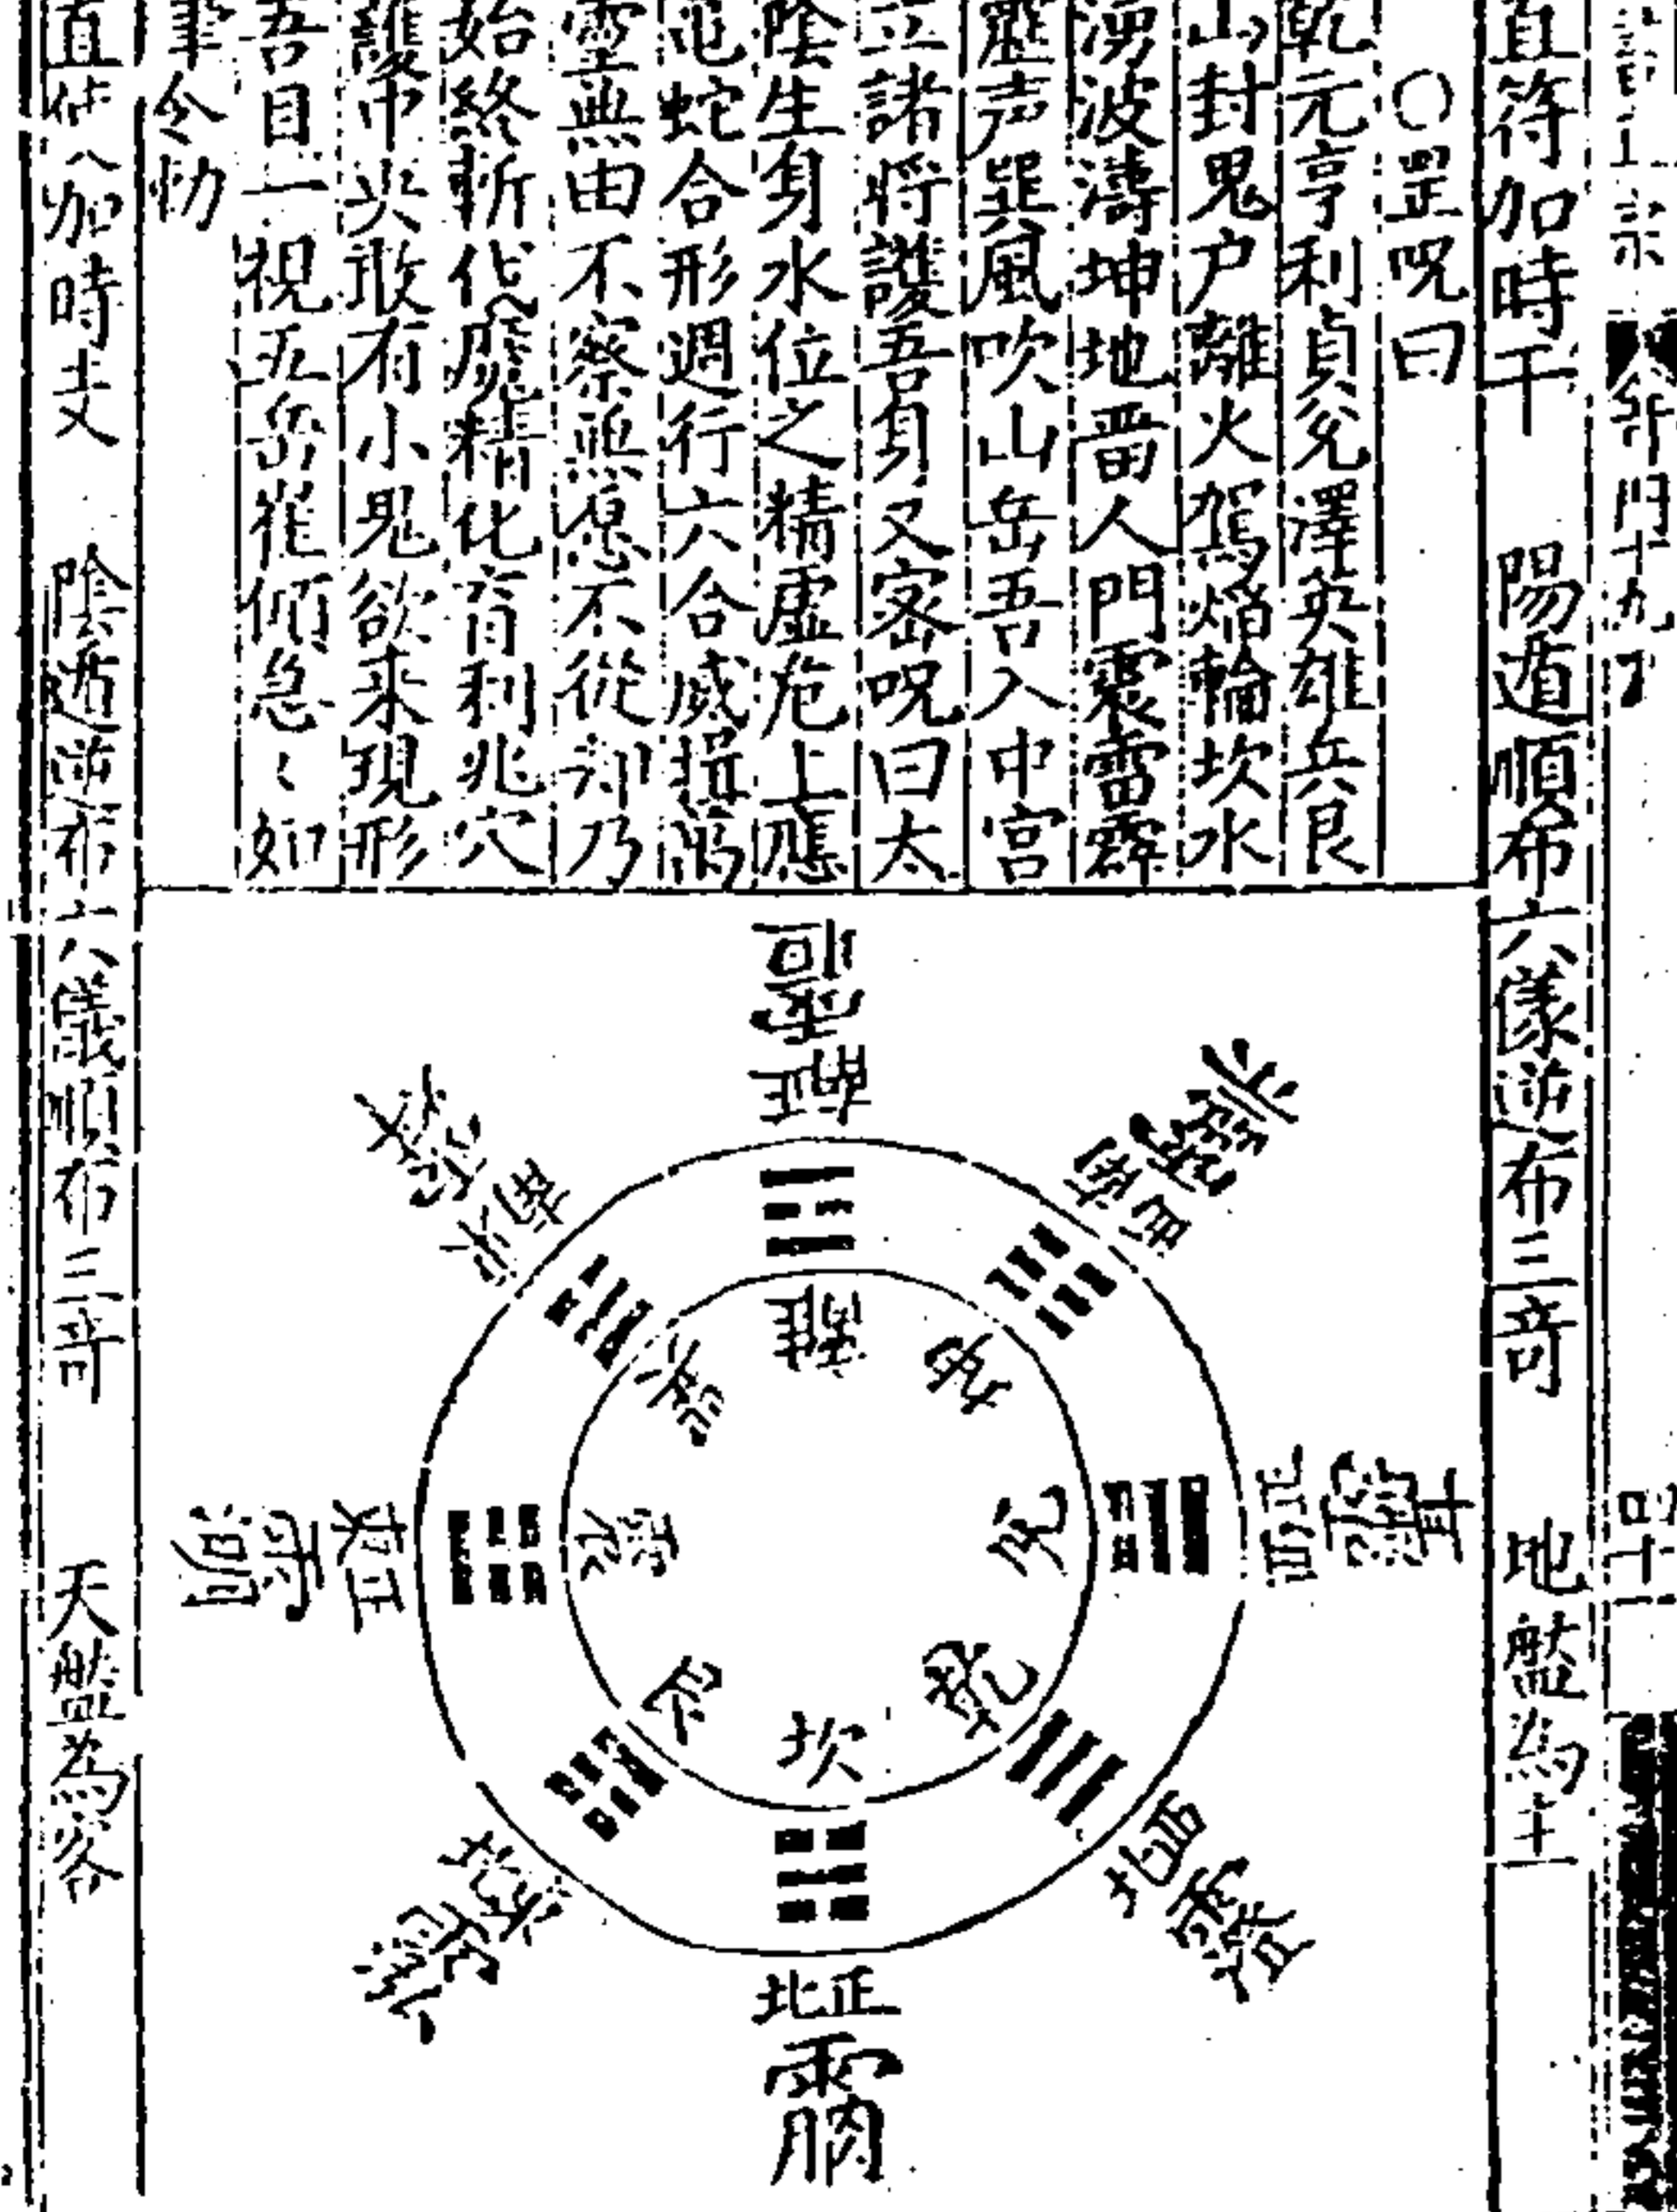 直符加時干 陽遁順布六儀逆布三竒 地盤為主
○罡咒曰
乾元亨利貞兊澤英雄兵艮
山封鬼户離火駕焔輪坎水
湧波濤坤地畱人門震雷霹
靂声巽風吹山岳吾入中宮
立諸将護吾身又宻咒曰太
陰生身水位之精虚危上應
龟蛇合形週行六合威揖萬
靈無由不察無愿不從刦乃
始終斬伐魔精化育利兆穴
護中央敢有小鬼欲来現形
吾目一視五岳崔傾急〻如
筆令勅
直使八加時支 陰遁逆布六儀順布三竒 天盤為客
離
坤
兊
乾
坎
艮
震
巽
正南
西南
正西
西北
正北
東北
正東
東南
四十一